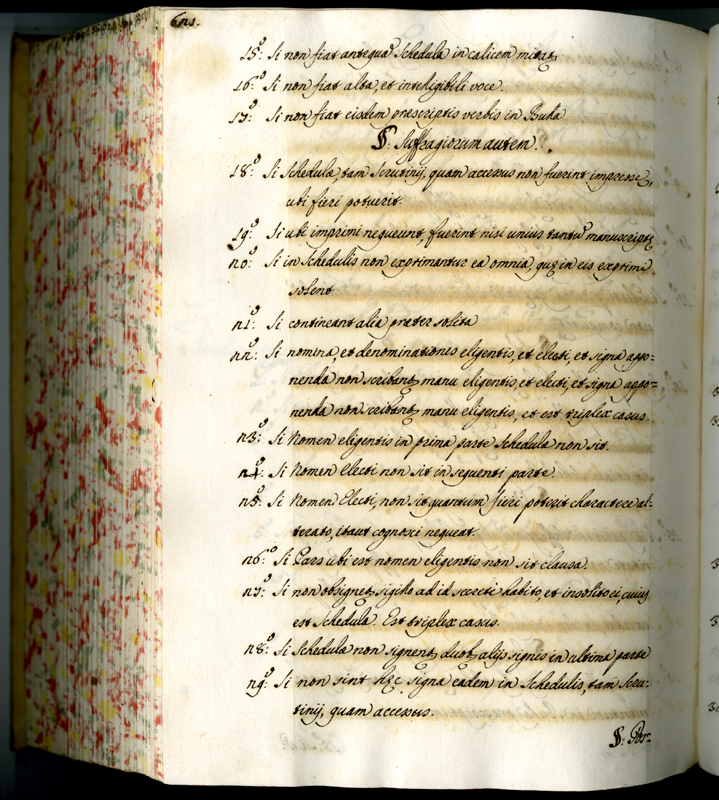 621.
15.º Si non fiat antequã Schedula in calicem mitatʒ
16.º Si non fiat alta, et intelligibili voce.
17.º Si non fiat eisdem prescriptis verbis in Bulla
§: Suffragiorum autem.
18.º Si Schedulæ, tam Scrutinij, quam accessus non fuerint impressę,
ubi fieri potuerit.
19.º Si ubi imprimi nequeunt, fuerint nisi unius tantũ manuscriptę
20.º Si in Schedulis non exprimantur ea omnia, quę in eis exprimi
solent
21.º Si contineant alia preter solita
22.º Si nomina, et denominationes eligentis, et electi, et signa appo=
nenda non scribantʒ manu eligentis, et electi, et signa appo=
nenda non scribantʒ manu eligentis, et est triplex casus.
23.º Si Nomen eligentis in prima parte Schedulæ non sit.
24.º Si Nomen Electi non sit in sequenti parte.
25.º Si Nomen Electi, non sit quantum fieri poterit charactere al-
terato, itaut cognosci nequeat.
26.º Si Pars ubi est nomen eligentis non sit clausa.
27.º Si non obsignetʒ sigillo ad id secreti habito, et insolito ei, cuius
est Schedula. Est triplex casus.
28.º Si Schedulæ non signentʒ duobʒ alijs signis in ultima parte
29.º Si non sint hęc signa eadem in Schedulis, tam Scru-
tinij, quam accessus.
§: Por.